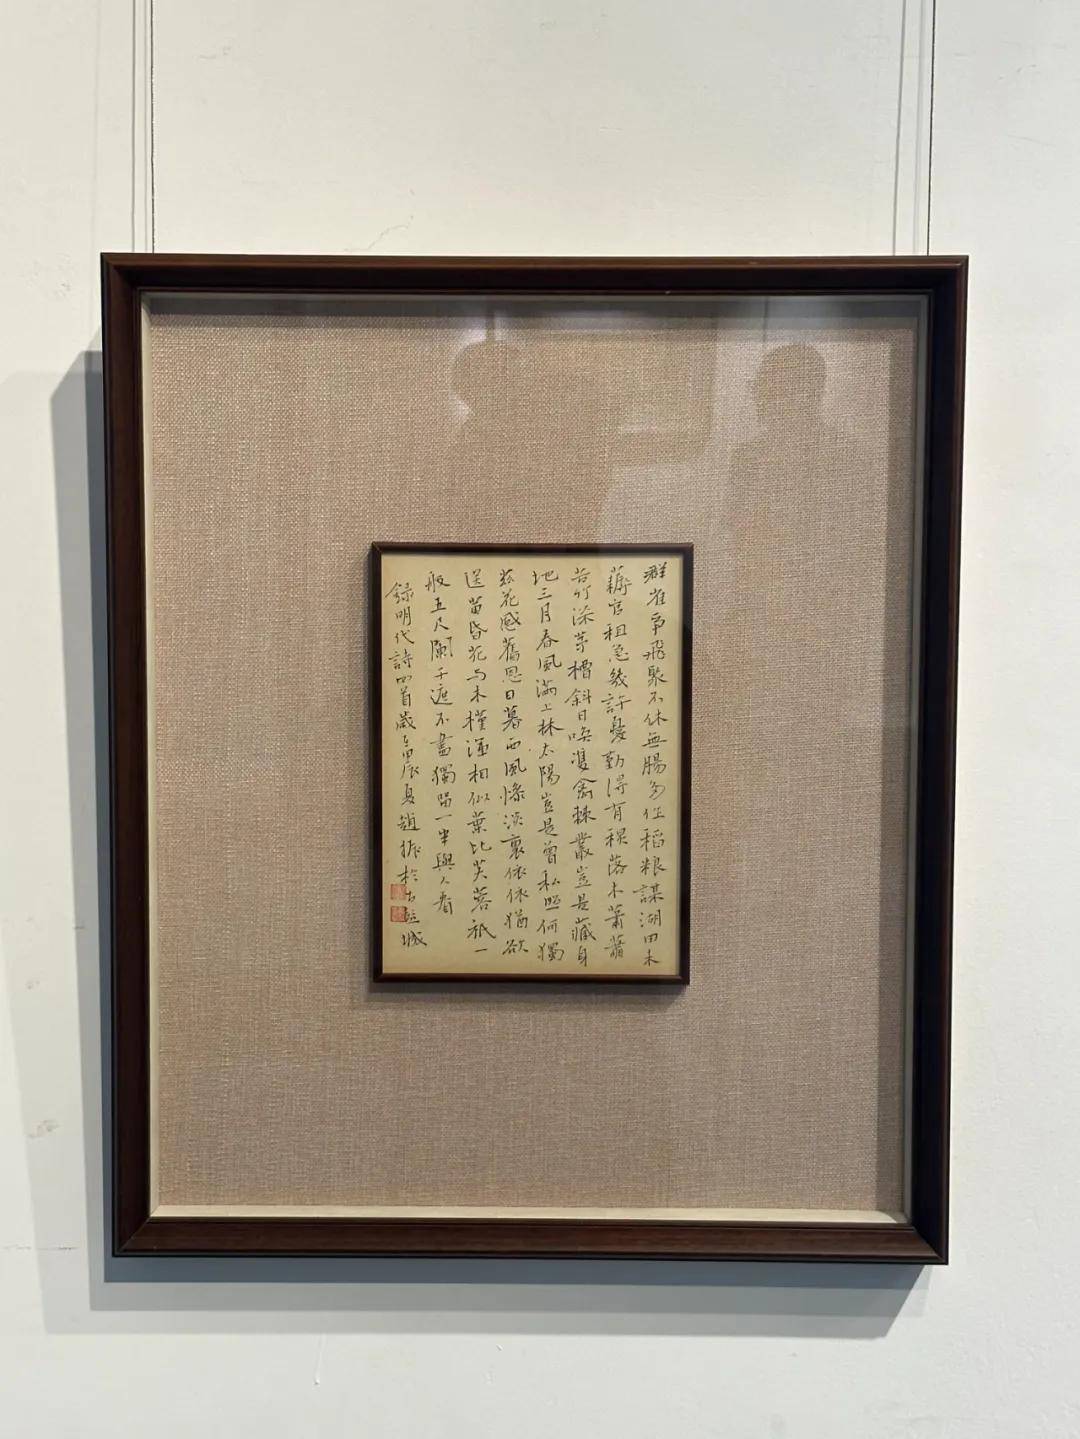 群雀爭飛聚不休無腸多住稻粮謀湖田未
薅官租急幾許憂勤得有落木蕭蕭
苦竹深茅斜日喚雙禽棘叢豈是藏身
地三月春風滿上林太陽豈是曾私照何獨
茲花感舊恩日暮西風慘淡裏依依猶欲
送黃昏花与木槿渾相似葉比芙蓉秖一
般五尺闌干遮不盡獨留一半與人看
錄明代詩四首歲在甲辰夏趙振於古城